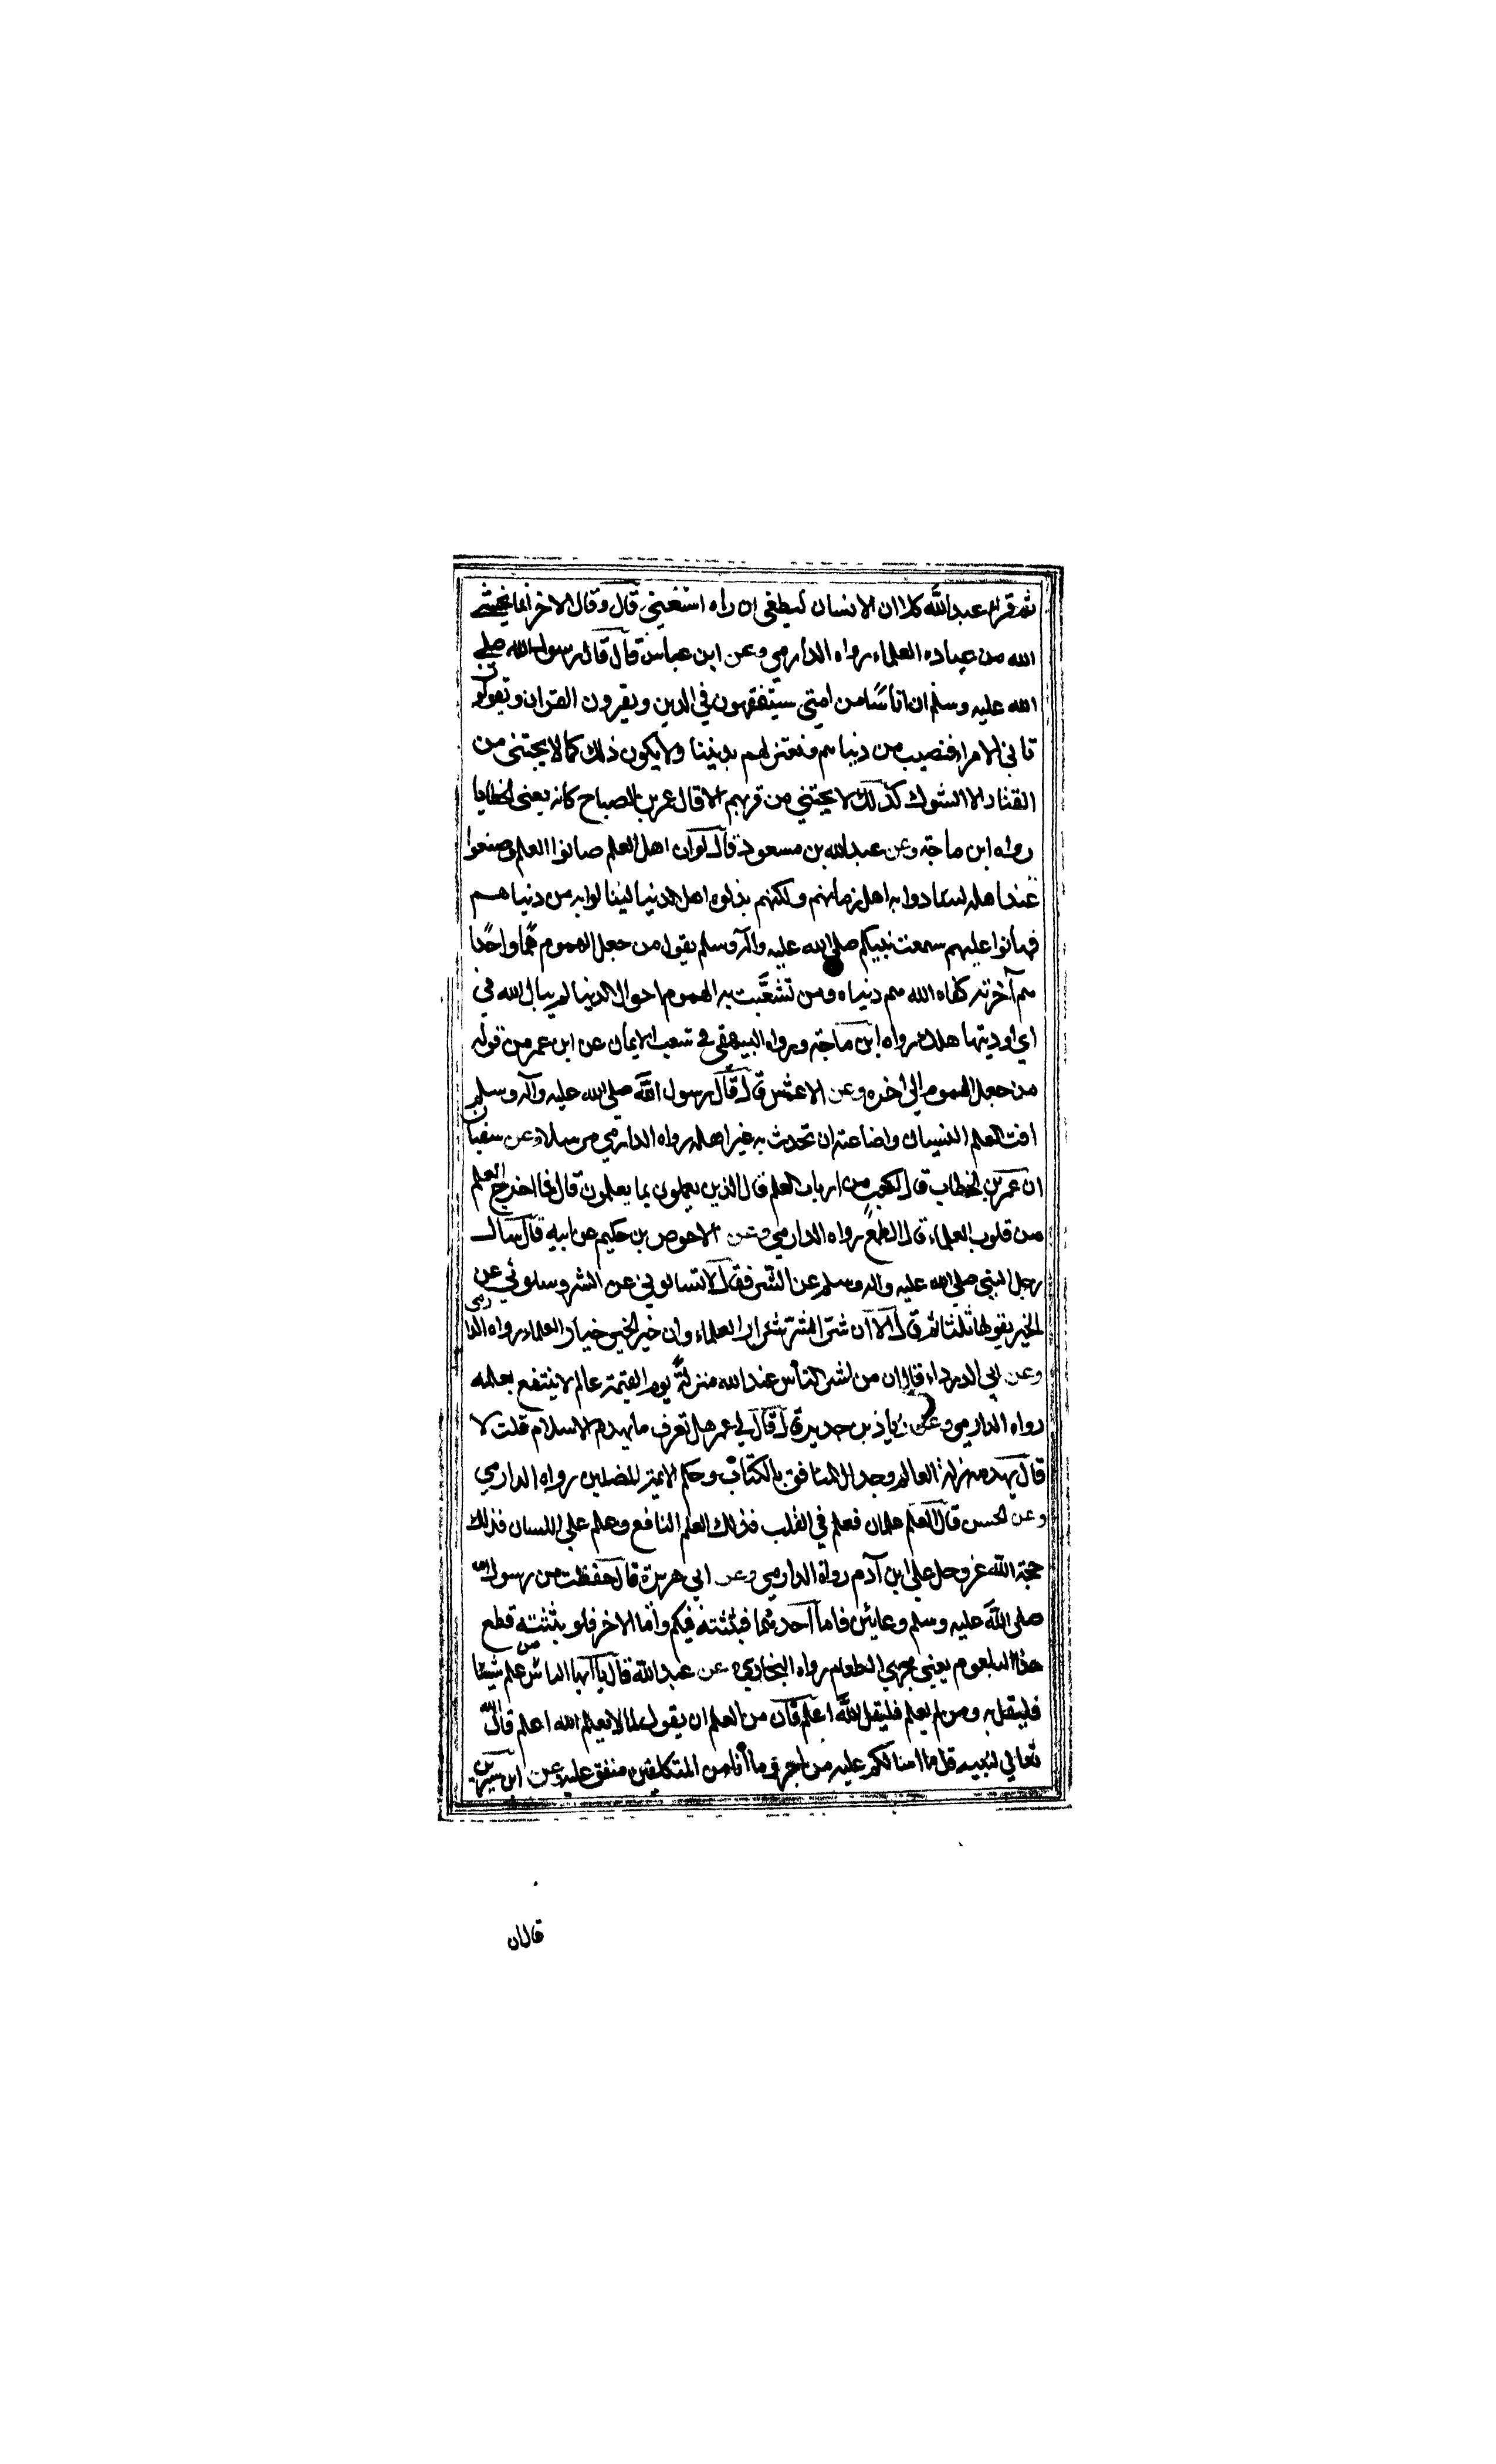 ثم قراء عبدالله كلا ان الانسان ليطغى ان راه استغنى قال وقال الاخر انما يخشى
الله من عباده العلماء رواه الدارمي وعن ابن عباس قال قال رسول الله صلى
الله عليه وسلم ان اناسًا من امتي سيتفقهون في الدين ويقرون القران ويقولون
تاني الامراء فنصيب من دنياهم ونعتزلهم بديننا ولا يكون ذلك كما لا يجتنى من
القتاد الا الشوك كذلك لا يجتني من قربهم الا قال محمد بن الصباح كانه يعنى الخطايا
رواه ابن ماجة وعن عبدالله بن مسعود قال لو ان اهل العلم صانوا العلم وضعوا
عند اهله لسادوا به اهل زمانهم ولكنهم بذلوه اهل الدنيا لينالوا به من دنياهم
فهانوا عليهم سمعت نبيكم صلى الله عليه واله وسلم يقول من جعل الهموم همًا واحدًا
هم آخرته كفاه الله هم دنياه ومن تشعّبت به الهموم احوال الدنيا لم يبال الله في
اي اوديتها هلك رواه ابن ماجة ورواه البيهقي في شعب الايمان عن ابن عمر من قوله
من جعل الهموم الى اخره وعن الاعمش قال قال رسول الله صلى الله عليه واله وسلم
افت العلم النسيان واضاعته ان تحدث به غير اهله رواه الدارمي مرسلا وعن سفيان
ان عمر بن الخطاب قال لكعب من ارباب العلم قال الذين يعملون بما يعلمون قال فما اخرج العلم
من قلوب العلماء قال الطمع رواه الدارمي وعن الاحوص بن حكيم عن ابيه قال سال
رجل النبي صلى الله عليه واله وسلم عن الشر فقال لا تسالوني عن الشر وسلوني عن
الخير يقولها ثلثا ثم قال الا ان شر الشر شرار العلماء وان خير الخير خيار العلماء رواه الدارمى
وعن ابي الدرداء قال ان من اشر الناس عند الله منزلةً يوم القيمة عالم لا ينتفع بعلمه
رواه الدارمي وعن زياد بن حدير قال قال لي عمر هل تعرف ما يهدم الاسلام قلت لا
قال يهدمه زلة العالم وجدال المنافق بالكتاب وحكم الايمة المضلين رواه الدارمي
وعن الحسن قال العلم علمان فعلم في القلب فذلك العلم النافع وعلم على اللسان فذلك
حجة الله عز وجل على ابن آدم رواه الدارمي وعن ابي هريرة قال حفظت من رسول الله
صلى الله عليه وسلم وعائين فاما احدهما فبثثته فيكم واما الاخر فلو بثثته قطع
هذا البلعوم يعني مجرى الطعام رواه البخاري وعن عبدالله قال يا ايها الناس من علم شيئا
فليقل به ومن لم يعلم فليقل الله اعلم فان من العلم ان يقول لما لا يعلم الله اعلم قال الله
تعالي لنبيه قل ما اسئالكم عليه من اجر وما انا من المتكلفين متفق عليه وعن ابن سيرين
قال ان